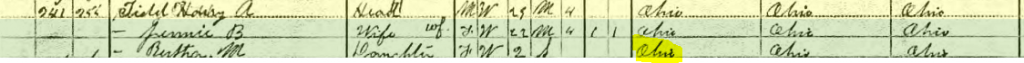 241 252 Field Harry A Head M W 29 M 4 Ohio Ohio Ohio
– Jennie B Wife wf. F W 22 M 4 1 1 Ohio Ohio Ohio
– Bertha M Daughter F W 2 S Ohio Ohio Ohio